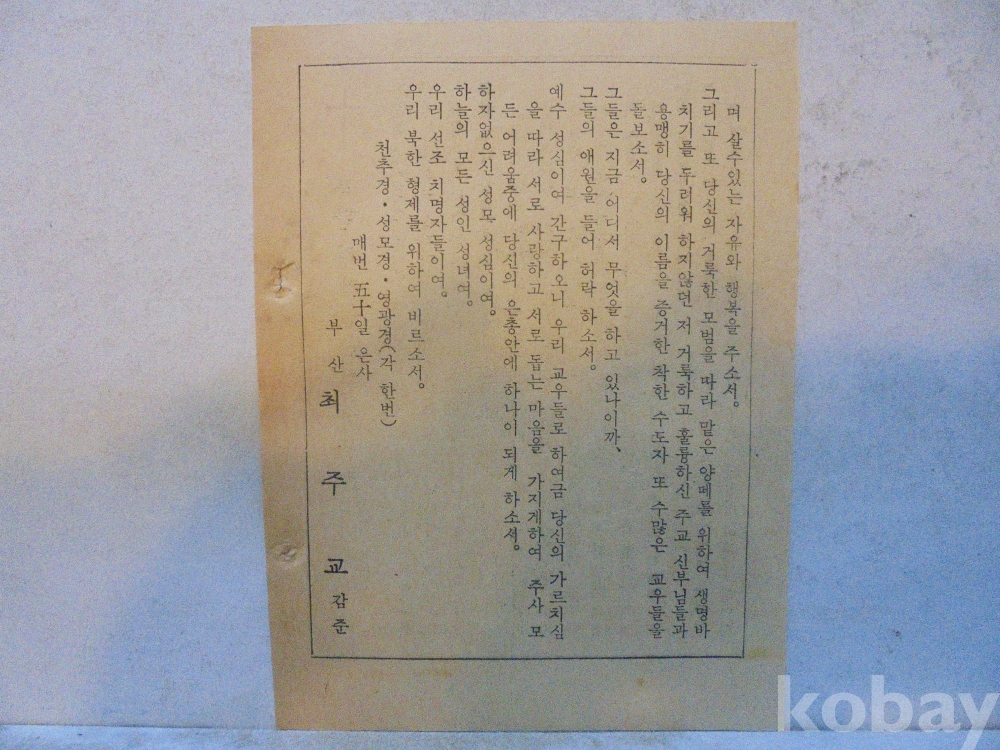 며 살수있는 자유와 행복을 주소서.
그리고 또 당신의 거룩한 모범을 따라 맡은 양떼를 위하여 생명바
치기를 두려워 하지않던 저 거룩하고 훌륭하신 주교 신부님들과
용맹히 당신의 이름을 증거한 착한 수도자 또 수많은 교우들을
돌보소서.
그들은 지금 어디서 무엇을 하고 있나이까、
그들의 애원을 들어 허락 하소서.
예수 성심이여 간구하오니 우리 교우들로 하여금 당신의 가르치심
을 따라 서로 사랑하고 서로 돕는 마음을 가지게하여 주사 모
든 어려움중에 당신의 은총안에 하나이 되게 하소서.
하자없으신 성모 성심이여.
하늘의 모든 성인 성녀여.
우리 선조 치명자들이여.
우리 북한 형제를 위하여 비르소서.
천추경·성모경·영광경(각 한번)
매번 五十일 은사
부산 최 주 교 감준
kobay